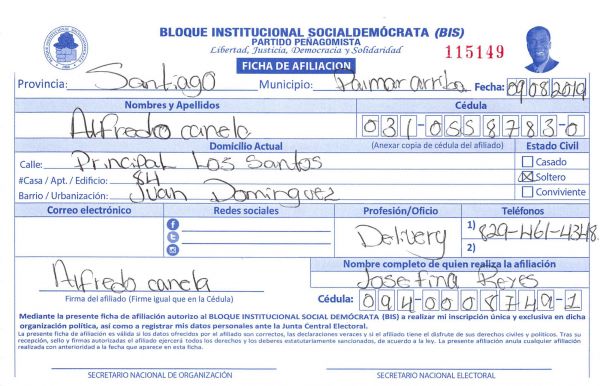 BLOQUE INSTITUCIONAL SOCIALDEMÓCRATA (BIS)
PARTIDO PEÑAGOMISTA
Libertad, Justicia, Democracia y Solidaridad
115149
FICHA DE AFILIACION
Provincia: Santiago Municipio: Palmar arriba Fecha: 09082019
Nombres y Apellidos Cédula
Alfredo canela 031-0558783-0
Domicilio Actual (Anexar copia de cédula del afiliado) Estado Civil
Calle: Principal Los Santos Casado
#Casa / Apt. / Edificio: 84 Soltero
Barrio / Urbanización: Juan Dominguez Conviviente
Correo electrónico Redes sociales Profesión/Oficio Teléfonos
Delivery 1) 829-461-4348
2)
Nombre completo de quien realiza la afiliación
Alfredo canela Josefina Reyes
Firma del afiliado (Firme igual que en la Cédula) Cédula: 094-0008749-1
Mediante la presente ficha de afiliación autorizo al BLOQUE INSTITUCIONAL SOCIAL DEMÓCRATA (BIS) a realizar mi inscripción única y exclusiva en dicha
organización política, así como a registrar mis datos personales ante la Junta Central Electoral.
La presente ficha de afiliación es válida si los datos ofrecidos por el afiliado son correctos, las declaraciones veraces y si el afiliado tiene el disfrute de sus derechos civiles y políticos. Tras su
recepción, sello y firmas autorizadas el afiliado ejercerá todos los derechos y los deberes estatutariamente sancionados, de acuerdo a la ley. La presente afiliación anula cualquier afiliación
realizada con anterioridad a la fecha que aparece en esta ficha.
SECRETARIO NACIONAL DE ORGANIZACIÓN SECRETARIO NACIONAL ELECTORAL